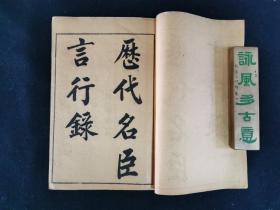 歷代名臣
言行錄
詠風多古意